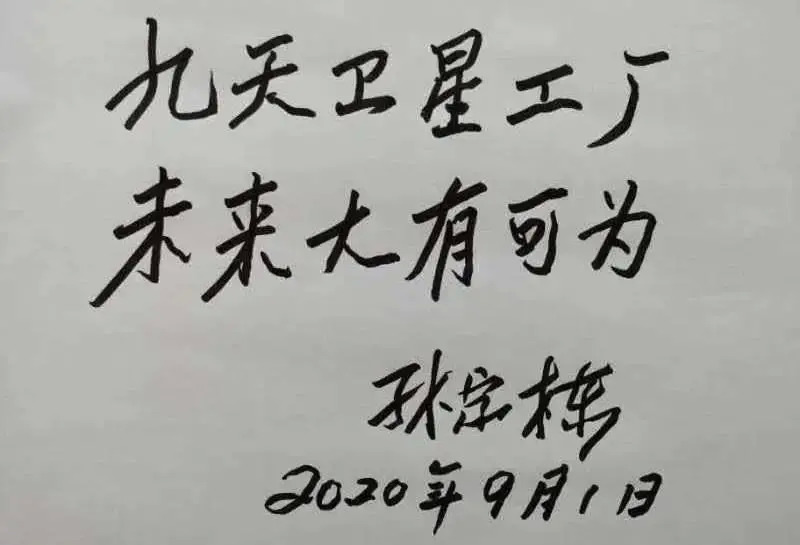 九天卫星工厂
未来大有可为
张宗栋
2020年9月1日